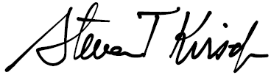 Steven T Kirsch